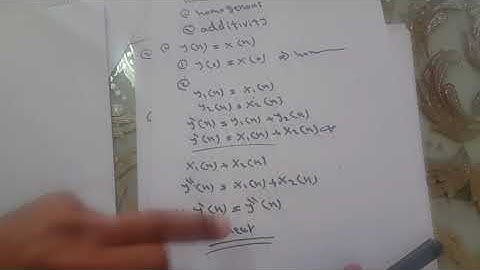 ② homogenous
② additivity
y(n) = x(n)
① y(0) = x(0) ⇒ hom
②
y₁(n) = x₁(n)
y₂(n) = x₂(n)
y'(n) = y₁(n) + y₂(n)
y'(n) = x₁(n) + x₂(n)
x₁(n) + x₂(n)
y''(n) = x₁(n) + x₂(n)
y'(n) = y''(n)